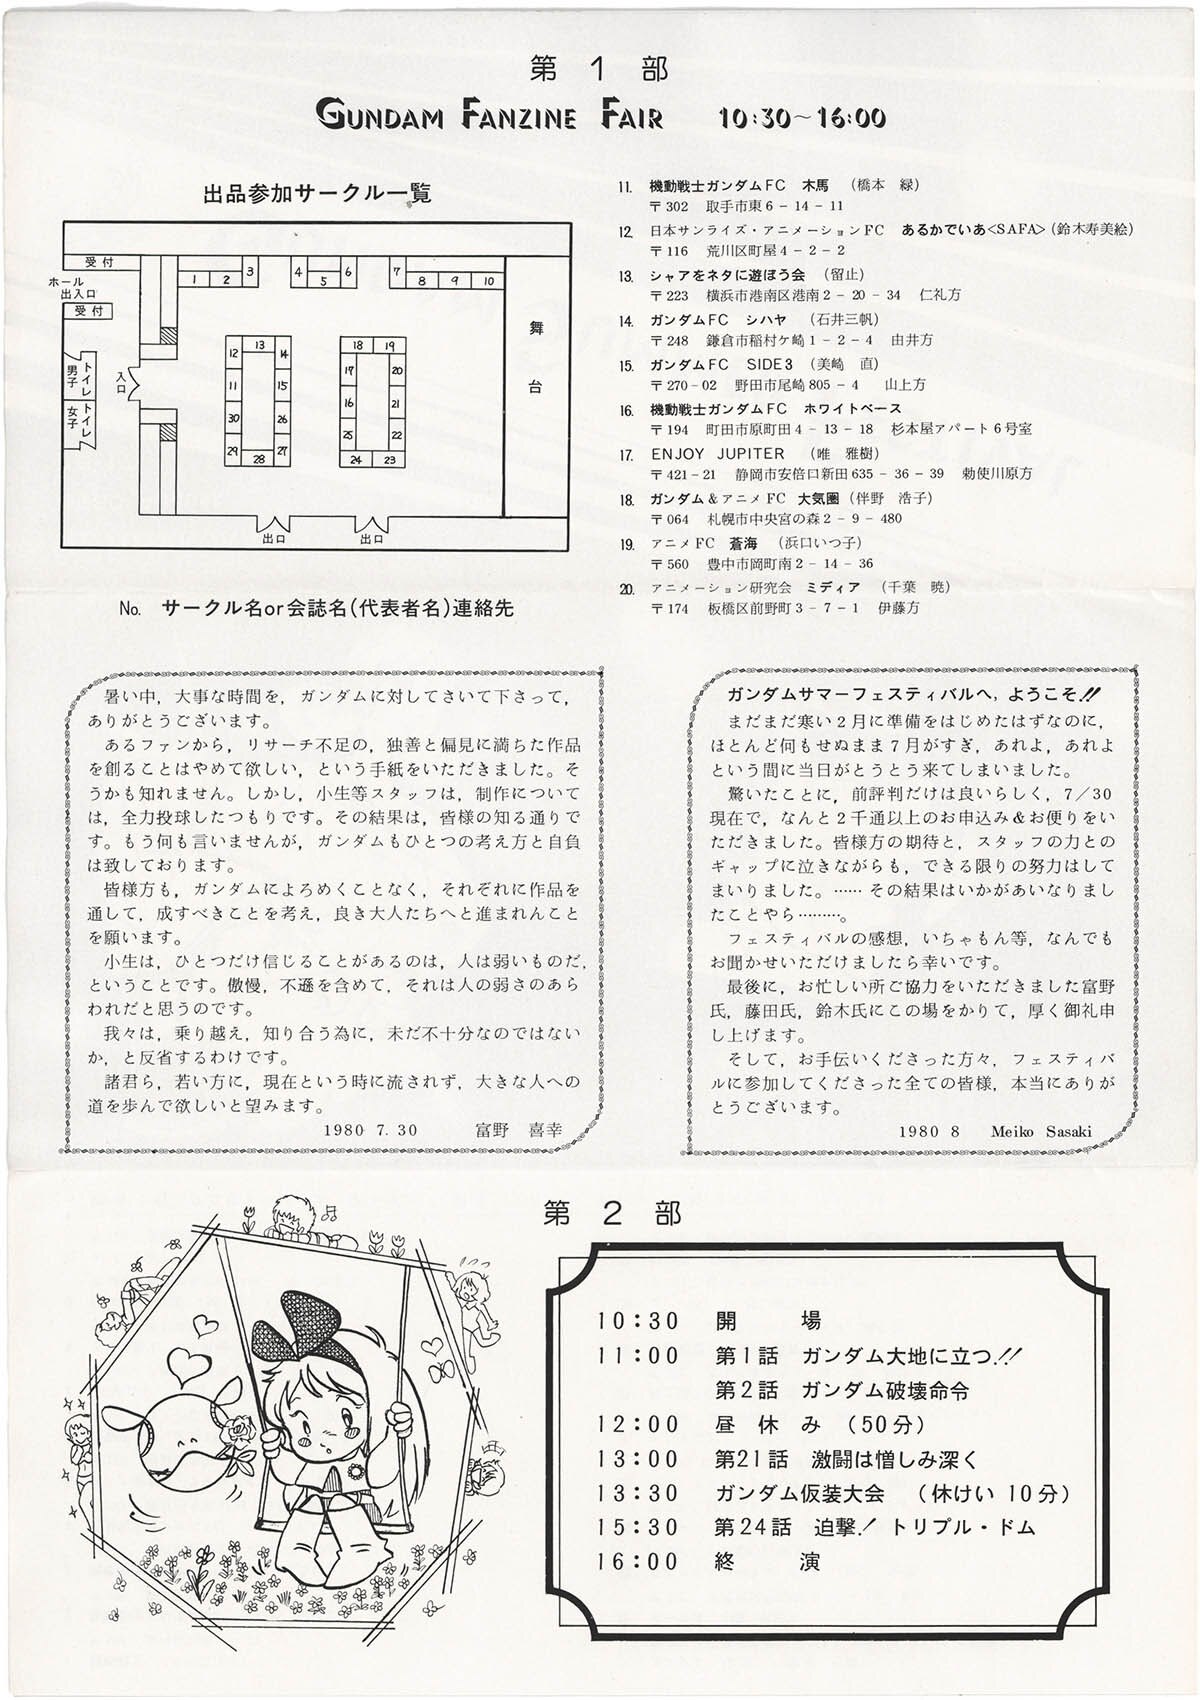 第 1 部
GUNDAM FANZINE FAIR 10:30〜16:00
出品参加サークル一覧
受付
ホール
出入口
受付
男子トイレ
女子トイレ
入口
1 2 3 4 5 6 7 8 9 10
舞台
12 13 14
11 15
30 26
29 28 27
18 19
17 20
16 21
25 22
24 23
出口
出口
No. サークル名or会誌名(代表者名)連絡先
11. 機動戦士ガンダムFC 木馬 (橋本 緑)
〒302 取手市東6-14-11
12. 日本サンライズ・アニメーションFC あるかでいあ<SAFA>(鈴木寿美絵)
〒116 荒川区町屋4-2-2
13. シャアをネタに遊ぼう会 (留止)
〒223 横浜市港南区港南2-20-34 仁礼方
14. ガンダムFC シハヤ (石井三帆)
〒248 鎌倉市稲村ケ崎1-2-4 由井方
15. ガンダムFC SIDE3 (美崎 直)
〒270-02 野田市尾崎805-4 山上方
16. 機動戦士ガンダムFC ホワイトベース
〒194 町田市原町田4-13-18 杉本屋アパート6号室
17. ENJOY JUPITER (唯 雅樹)
〒421-21 静岡市安倍口新田635-36-39 勅使川原方
18. ガンダム&アニメFC 大気圏 (伴野 浩子)
〒064 札幌市中央宮の森2-9-480
19. アニメFC 蒼海 (浜口いつ子)
〒560 豊中市岡町南2-14-36
20. アニメーション研究会 ミディア (千葉 暁)
〒174 板橋区前野町3-7-1 伊藤方
暑い中,大事な時間を,ガンダムに対してさいて下さって,
ありがとうございます。
あるファンから,リサーチ不足の,独善と偏見に満ちた作品
を創ることはやめて欲しい,という手紙をいただきました。そ
うかも知れません。しかし,小生等スタッフは,制作について
は,全力投球したつもりです。その結果は,皆様の知る通りで
す。もう何も言いませんが,ガンダムもひとつの考え方と自負
は致しております。
皆様方も,ガンダムによろめくことなく,それぞれに作品を
通して,成すべきことを考え,良き大人たちへと進まれんこと
を願います。
小生は,ひとつだけ信じることがあるのは,人は弱いものだ,
ということです。傲慢,不遜を含めて,それは人の弱さのあら
われだと思うのです。
我々は,乗り越え,知り合う為に,未だ不十分なのではない
か,と反省するわけです。
諸君ら,若い方に,現在という時に流されず,大きな人への
道を歩んで欲しいと望みます。
1980 7.30 富野 喜幸
ガンダムサマーフェスティバルへ,ようこそ!!
まだまだ寒い2月に準備をはじめたはずなのに,
ほとんど何もせぬまま7月がすぎ,あれよ,あれよ
という間に当日がとうとう来てしまいました。
驚いたことに,前評判だけは良いらしく,7/30
現在で,なんと2千通以上のお申込み&お便りをい
ただきました。皆様方の期待と,スタッフの力との
ギャップに泣きながらも,できる限りの努力はして
まいりました。…… その結果はいかがあいなりまし
たことやら………。
フェスティバルの感想,いちゃもん等,なんでも
お聞かせいただけましたら幸いです。
最後に,お忙しい所ご協力をいただきました富野
氏,藤田氏,鈴木氏にこの場をかりて,厚く御礼申
し上げます。
そして,お手伝いくださった方々,フェスティバ
ルに参加してくださった全ての皆様,本当にありが
とうございます。
1980 8 Meiko Sasaki
第 2 部
10:30 開 場
11:00 第1話 ガンダム大地に立つ!!
第2話 ガンダム破壊命令
12:00 昼 休 み (50分)
13:00 第21話 激闘は憎しみ深く
13:30 ガンダム仮装大会 (休けい 10分)
15:30 第24話 迫撃! トリプル・ドム
16:00 終 演